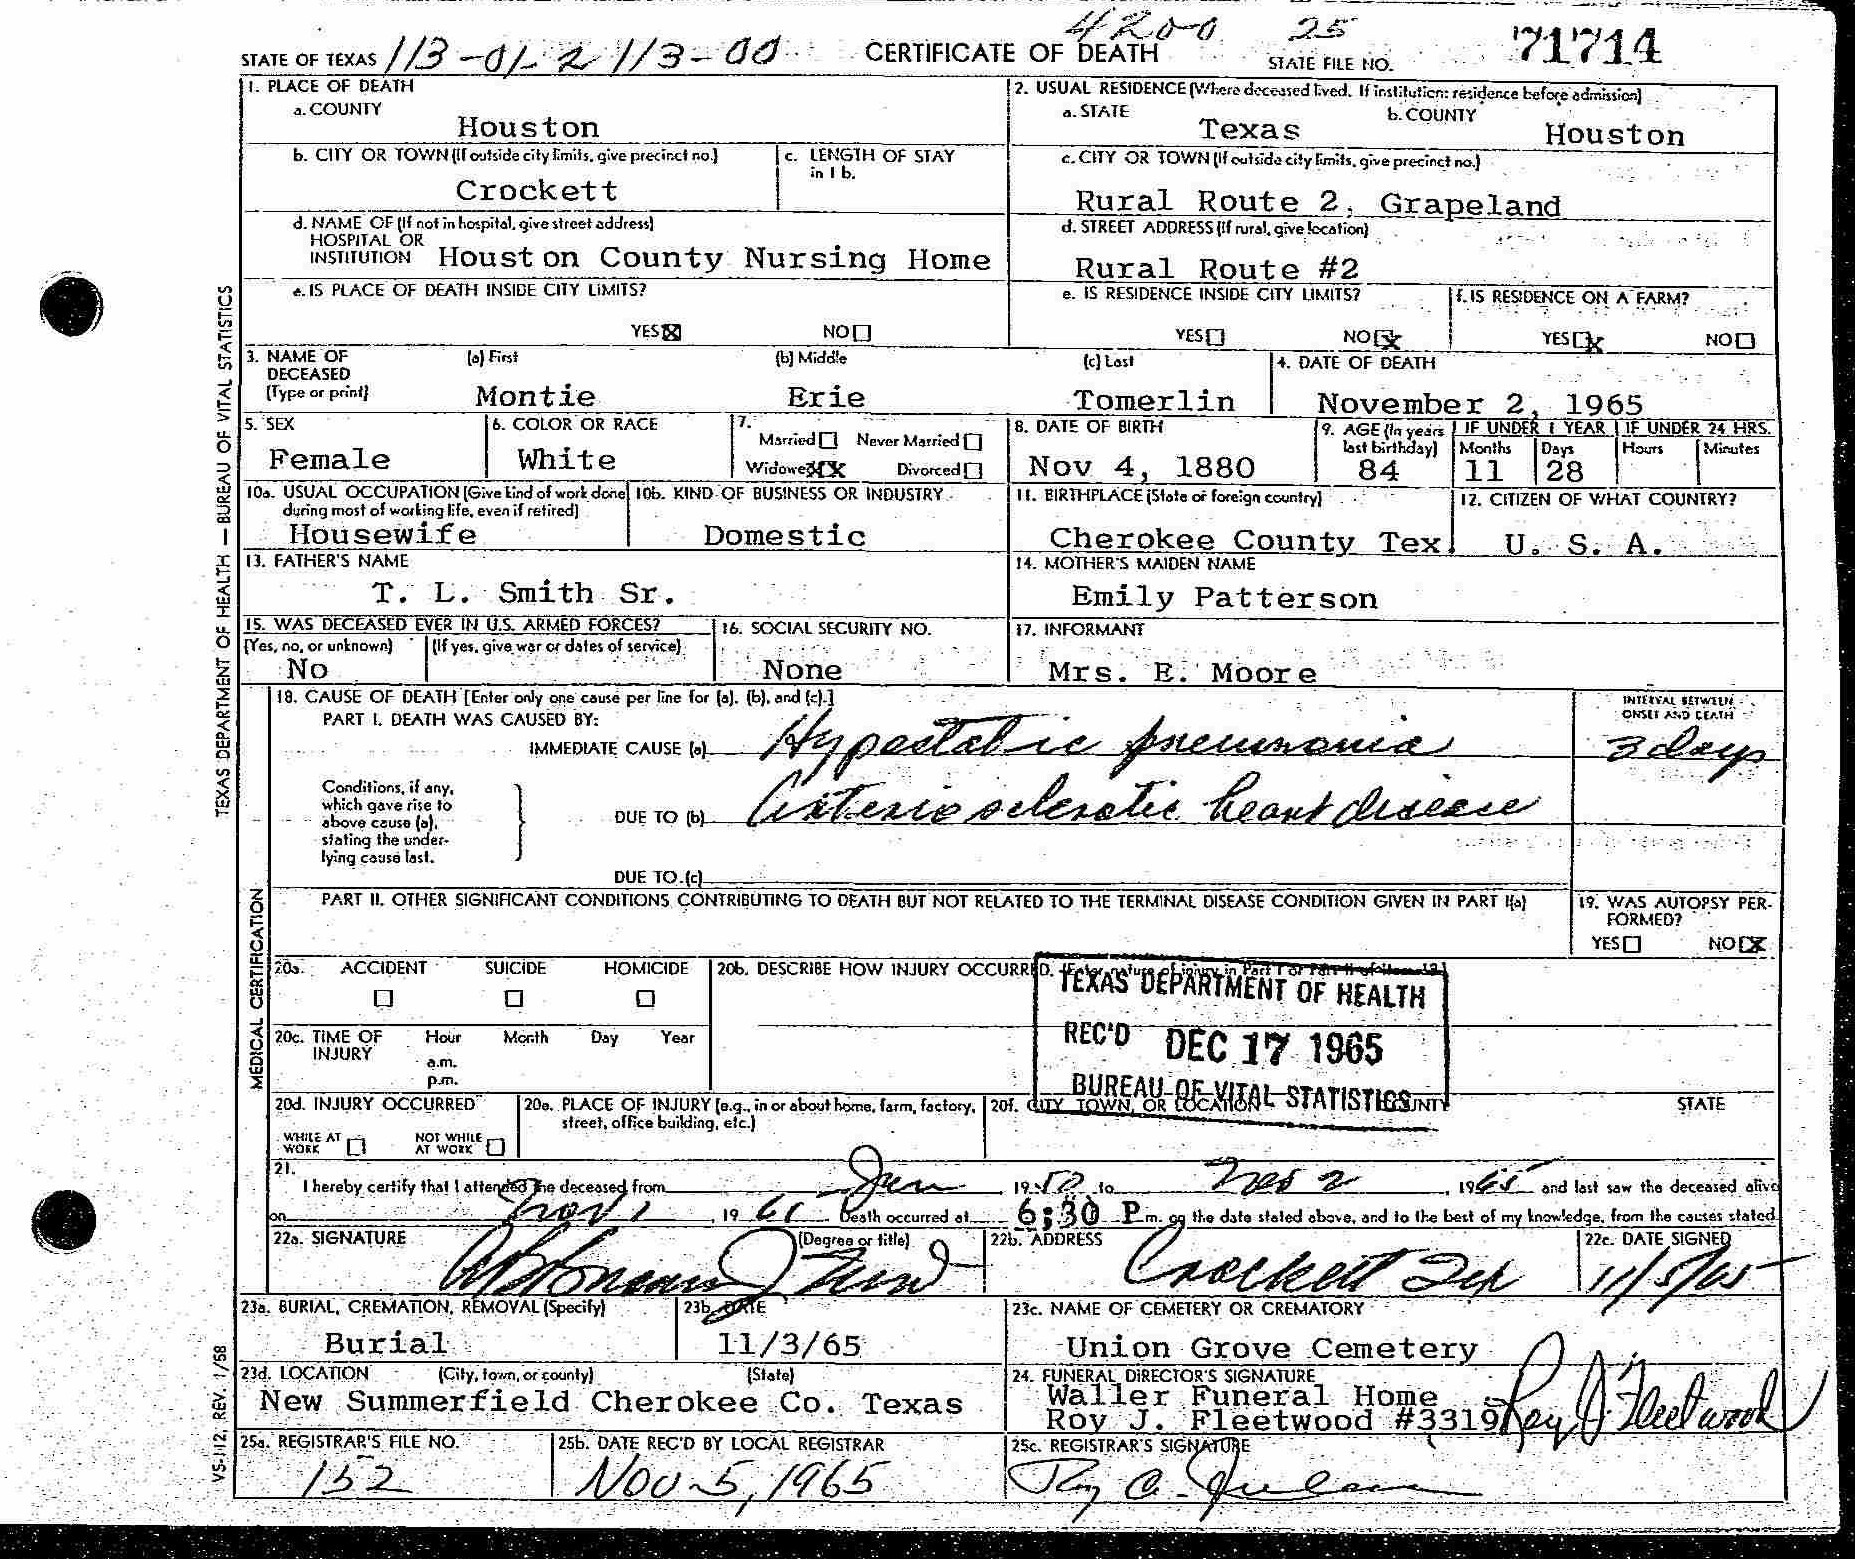 4200 25
STATE OF TEXAS 113-01-2 113-00 CERTIFICATE OF DEATH STATE FILE NO. 71714
1. PLACE OF DEATH
a. COUNTY
Houston
2. USUAL RESIDENCE (Where deceased lived. If institution: residence before admission)
a. STATE b. COUNTY
Texas Houston
b. CITY OR TOWN (If outside city limits, give precinct no.)
Crockett
c. LENGTH OF STAY
in 1 b.
c. CITY OR TOWN (If outside city limits, give precinct no.)
Rural Route 2, Grapeland
d. NAME OF (If not in hospital, give street address)
HOSPITAL OR
INSTITUTION Houston County Nursing Home
d. STREET ADDRESS (If rural, give location)
Rural Route #2
e. IS PLACE OF DEATH INSIDE CITY LIMITS?
YES X NO
e. IS RESIDENCE INSIDE CITY LIMITS?
YES NO X
f. IS RESIDENCE ON A FARM?
YES X NO
3. NAME OF (a) First (b) Middle (c) Last
DECEASED
(Type or print) Montie Erie Tomerlin
4. DATE OF DEATH
November 2, 1965
5. SEX
Female
6. COLOR OR RACE
White
7.
Married Never Married
Widowed XX Divorced
8. DATE OF BIRTH
Nov 4, 1880
9. AGE (In years
last birthday)
84
IF UNDER 1 YEAR IF UNDER 24 HRS.
Months Days Hours Minutes
11 28
10a. USUAL OCCUPATION (Give kind of work done
during most of working life, even if retired)
Housewife
10b. KIND OF BUSINESS OR INDUSTRY
Domestic
11. BIRTHPLACE (State or foreign country)
Cherokee County Tex.
12. CITIZEN OF WHAT COUNTRY?
U. S. A.
13. FATHER'S NAME
T. L. Smith Sr.
14. MOTHER'S MAIDEN NAME
Emily Patterson
15. WAS DECEASED EVER IN U.S. ARMED FORCES?
(Yes, no, or unknown) (If yes, give war or dates of service)
No
16. SOCIAL SECURITY NO.
None
17. INFORMANT
Mrs. E. Moore
18. CAUSE OF DEATH [Enter only one cause per line for (a), (b), and (c).]
PART I. DEATH WAS CAUSED BY:
INTERVAL BETWEEN
ONSET AND DEATH
IMMEDIATE CAUSE (a) Hypostatic pneumonia 3 days
Conditions, if any,
which gave rise to
above cause (a),
stating the under-
lying cause last.
DUE TO (b) Arteriosclerotic heart disease
DUE TO (c)
PART II. OTHER SIGNIFICANT CONDITIONS CONTRIBUTING TO DEATH BUT NOT RELATED TO THE TERMINAL DISEASE CONDITION GIVEN IN PART I(a)
19. WAS AUTOPSY PER-
FORMED?
YES NO X
20a. ACCIDENT SUICIDE HOMICIDE
20b. DESCRIBE HOW INJURY OCCURRED. (Enter nature of injury in Part I or Part II of item 18.)
20c. TIME OF Hour Month Day Year
INJURY a.m.
p.m.
TEXAS DEPARTMENT OF HEALTH
REC'D DEC 17 1965
BUREAU OF VITAL STATISTICS
20d. INJURY OCCURRED
WHILE AT WORK NOT WHILE AT WORK
20e. PLACE OF INJURY (e.g., in or about home, farm, factory,
street, office building, etc.)
20f. CITY, TOWN, OR LOCATION COUNTY STATE
21.
I hereby certify that I attended the deceased from Jun 1950 to Nov 2, 1965 and last saw the deceased alive
on Nov 1, 19 Death occurred at 6:30 P m. on the date stated above, and to the best of my knowledge, from the causes stated.
22a. SIGNATURE (Degree or title)
22b. ADDRESS
Crockett Tex
22c. DATE SIGNED
11/5/65
23a. BURIAL, CREMATION, REMOVAL (Specify)
Burial
23b. DATE
11/3/65
23c. NAME OF CEMETERY OR CREMATORY
Union Grove Cemetery
23d. LOCATION (City, town, or county) (State)
New Summerfield Cherokee Co. Texas
24. FUNERAL DIRECTOR'S SIGNATURE
Waller Funeral Home
Roy J. Fleetwood #3319 Roy J. Fleetwood
25a. REGISTRAR'S FILE NO.
152
25b. DATE REC'D BY LOCAL REGISTRAR
Nov 5, 1965
25c. REGISTRAR'S SIGNATURE
TEXAS DEPARTMENT OF HEALTH — BUREAU OF VITAL STATISTICS
MEDICAL CERTIFICATION
VS-112, REV. 1/58